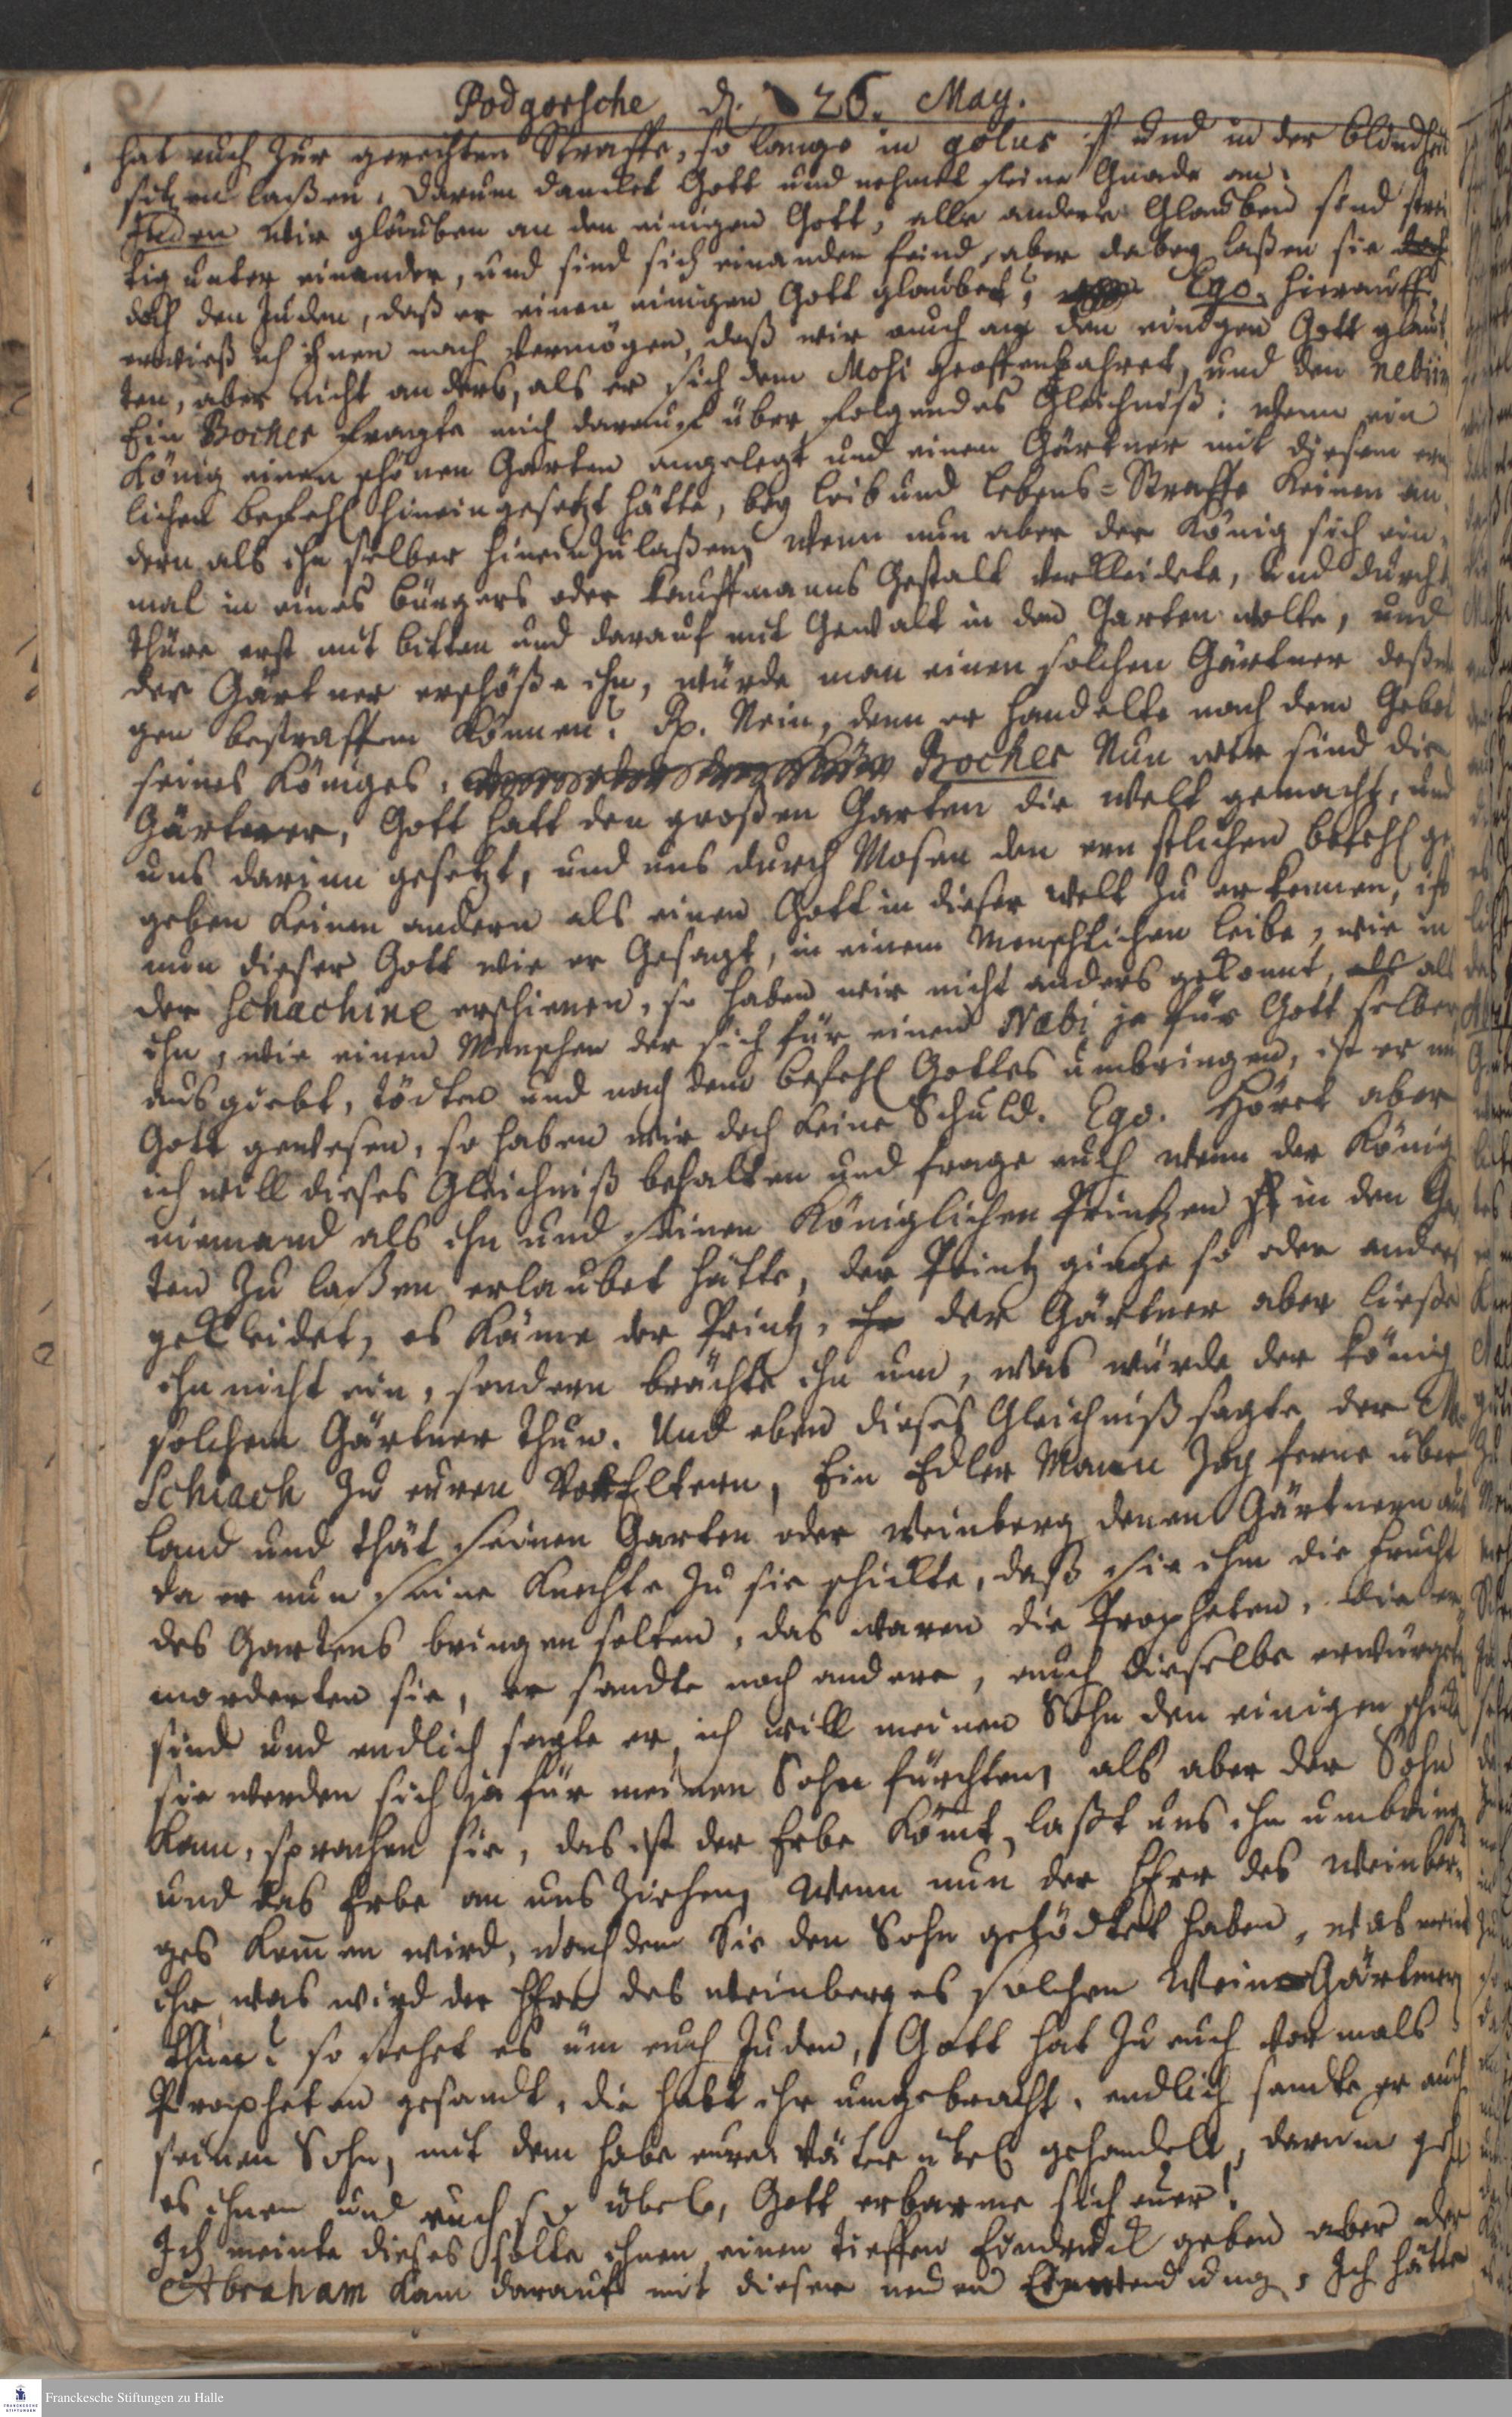 Podgorsche d. 26. May.
hat euch zur gerechten Straffe, so lange in golus und in der blindheit
sitzen laßen, darum dancket Gott und nehmet seine Gnade an.
Juden Wir glauben an den einigen Gott, alle andere Glauben sind strei
tig unter einander, und sind sich einander feind, aber dabey laßen sie
doch den Juden, daß er einen einigen Gott glaubet, Ego. hierauff
erwieß ich ihnen nach Vermögen, daß wir auch an den einigen Gott glaub
ten, aber nicht anders, als er sich dem Mosi geoffenbahret, und den nebiim
Ein Bocher fragte mich darauf über folgendes Gleichniß: Wenn ein
König einen schönen Garten angelegt und einen Gärtner mit diesem ern
lichen befehl hineingesetzt hätte, bey leib und lebens-Straffe keinen an
dern als ihn selber hineinzulaßen, Wenn nun aber der König sich ein
mal in eines bürgers oder kauffmanns Gestalt verkleidete, und durch
thüre erst mit bitten und darauf mit Gewalt in den Garten wolte, und
der Gärtner erschöße ihn, würde man einen solchen Gärtner deßwe
gen bestraffen können? Rp. Nein, denn er handelte nach dem Gebot
seines Königes. Bocher Nun wir sind die
Gärtner, Gott hatt den großen Garten die Welt gemacht, und
uns darinn gesetzt, und uns durch Mosen den ernstlichen befehl ge
geben keinen andern als einen Gott in dieser Welt zu erkennen, ist
nun dieser Gott wie er gesagt, in einem Menschlichen leibe, wie in
der Schachine erschienen, so haben wir nicht anders gekonnt, als als
ihn, wie einen Menschen der sich für einen Nabi ja für Gott selber
ausgiebt, tödten und nach dem befehl Gottes umbringen, ist er nun
Gott gewesen, so haben wir doch keine Schuld. Ego. Höret aber
ich will dieses Gleichniß behalten und frage euch wenn der König
niemand als ihn und seinen Königlichen Printzen in den Gar
ten zu laßen erlaubet hätte, der Printz ginge so oder anders
gekleidet, es käme der Printz, der Gärtner aber ließe
ihn nicht ein, sondern brächte ihn um, was würde der König
solchem Gärtner thun. Und eben dieses Gleichniß sagte der M
Schiach zu euren VorEltern, Ein Edler Mann zog ferne über
land und thät seinen Garten oder Weinberg denen Gärtnern aus
da er nun seine Knechte zu sie schickte, daß sie ihm die frucht
des Gartens bringen solten, das waren die Propheten, die er
morderten sie, er sandte noch andere, auch dieselbe erwürget
sind und endlich sagte er, ich will meinen Sohn den einigen schick
sie werden sich ja für meinen Sohn fürchten, als aber der Sohn
kam, sprachen sie, das ist der Erbe kömt, laßt uns ihn umbring
und das Erbe an uns ziehen, Wenn nun der Herr des Weinber
ges kommen wird, nachdem Sie den Sohn getödtet haben, was meint
ihr, was wird der Herr des Weinberges solchen Wein Gärtner
thun? so stehet es üm euch Juden, Gott hat zu euch vormals
Propheten gesandt, die habt ihr umgebracht, endlich sandte er auch
seinen Sohn, mit dem habe eure Väter übel gehandelt, darum geht
es ihnen und euch so übel, Gott erbarme sich euer!
Ich meinte dieses solte ihnen einen tieffen Eindruck geben aber der
Abraham kam darauf mit dieser neuen Einwendung, Ich hätte
Franckesche Stiftungen zu Halle